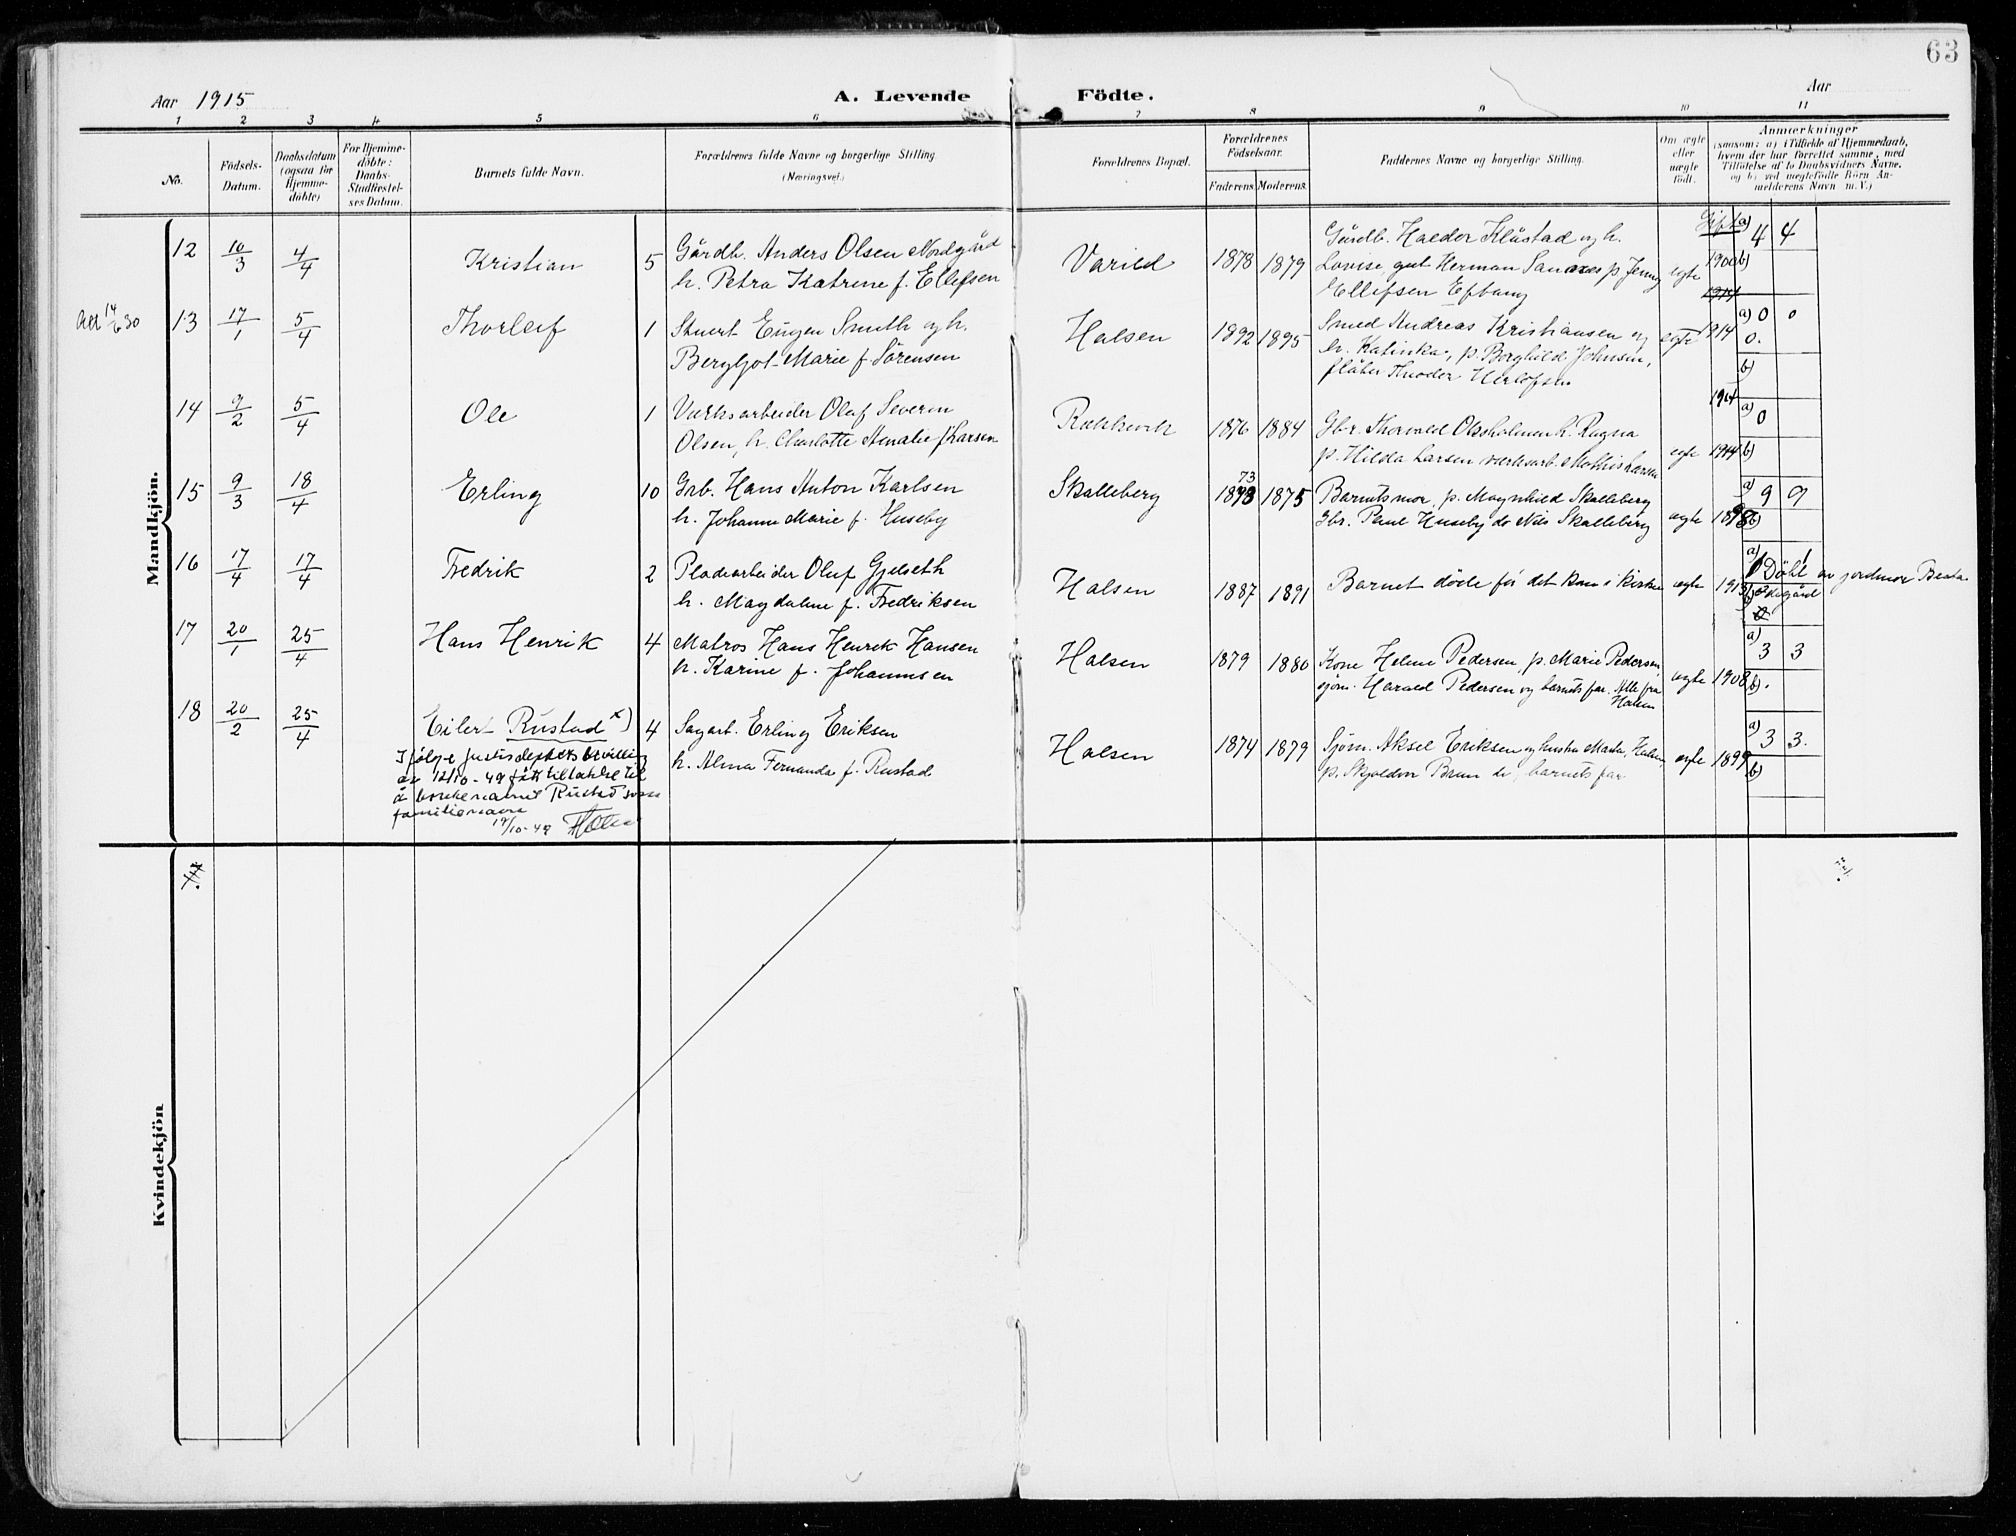 63
Aar 1915
A. Levende Födte.
Aar
1 2 3 4 5 6 7 8 9 10 11
No.
Födsels-Datum.
Daabsdatum (ogsaa for Hjemmedöbte)
For Hjemmedöbte: Daabs-Stadfæstelses Datum.
Barnets fulde Navn.
Forældrenes fulde Navne og borgerlige Stilling
(Næringsvei.)
Forældrenes Bopæl.
Forældrenes Födselsaar.
Faderens Moderens.
Faddernes Navne og borgerlige Stilling.
Om ægte eller uægte födt.
Anmærkninger
(saasom: a) i Tilfælde af Hjemmedaab, hvem der har forrettet samme, med Tilföielse af to Daabsvidners Navne. og b) ved uægtefödte Börn Anmelderens Navn m. V.)
Mandkjön.
12 10/3 4/4 Kristian 5 Gårdb. Anders Olsen Nordgård
h. Petra Katrine f. Ellefsen
Varild 1878 1879
Gårdb. Halder Klåstad og h.
Lovise, gut Herman p. Jenny
Ellefsen
ægte 1900 1914 a) 4 4 b)
Att 14/6 30
13 17/1 5/4 Thorleif 1 Stuert Eugen Smith og h.
Bergljot Marie f. Sörensen
Halsen 1892 1895
Smed Andreas Kristiansen og
h. Katinka, p. Borghild Johnsen,
Theodor Herlofsen
ægte 1914 a) 0 0 0. b)
14 9/2 5/4 Ole 1 Værksarbeider Olaf Severin
Olsen, h. Charlotte Amalie f. Larsen
1876 1884
Gbr. Thorvald h. Ragna
p. Hilda Larsen værksarb. Larsen
ægte 1914 a) 0 b)
15 9/3 18/4 Erling 10 Grb. Hans Anton Karlsen
h. Johanne Marie f. Huseby
Skalleberg 1873 1875
Barnets mor, p. Magnhild Skalleberg
Gbr. Paul Huseby do Nils Skalleberg
ægte 1898 a) 9 9 b)
16 17/4 17/4 Fredrik 2 Pladearbeider Oluf Gjelseth
h. Magdalene f. Fredriksen
Halsen 1887 1891
Barnet döde för det kom i kirken
ægte 1913 a) 1 1 Döbt av jordmor Beata
b)
17 20/1 25/4 Hans Henrik 4 Matros Hans Henrik Hansen
h. Karine f. Johannsen
Halsen 1879 1880
Kone Helene Pedersen, p. Marie Pedersen,
sjöm. Harald Pedersen og barnets far. Alle fra
Halsen
ægte 1908 a) 3 3 b)
18 20/2 25/4 Eilert Rustad x) 4 Sagarb. Erling Eriksen
h. Alma Fernanda f. Rustad
Halsen 1874 1879
Sjöm. Aksel Eriksen og hustru Marta, Halsen,
p. Skjoldvor Bruun do, barnets far
ægte 1899 a) 3 3. b)
Ifölge Justisdeptets bevilling
av 12/10-49 fått tillatelse til
å bruke navnet Rustad som
familienavn
19/10-49
Kvindekjön